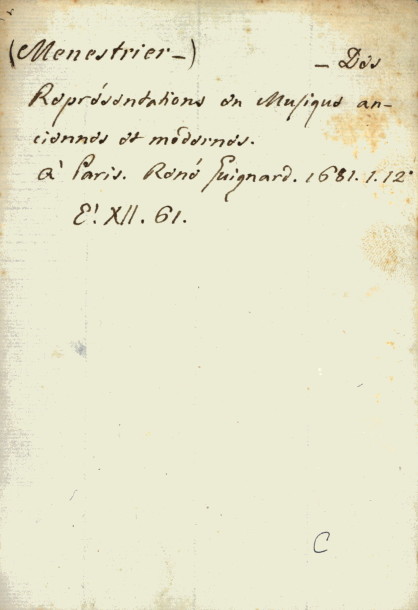 (Menestrier-)
- Des
Représentations en Musique an-
ciennes et modernes.
à Paris. René Guignard. 1681. 1. 12°
E! XII. 61.
C